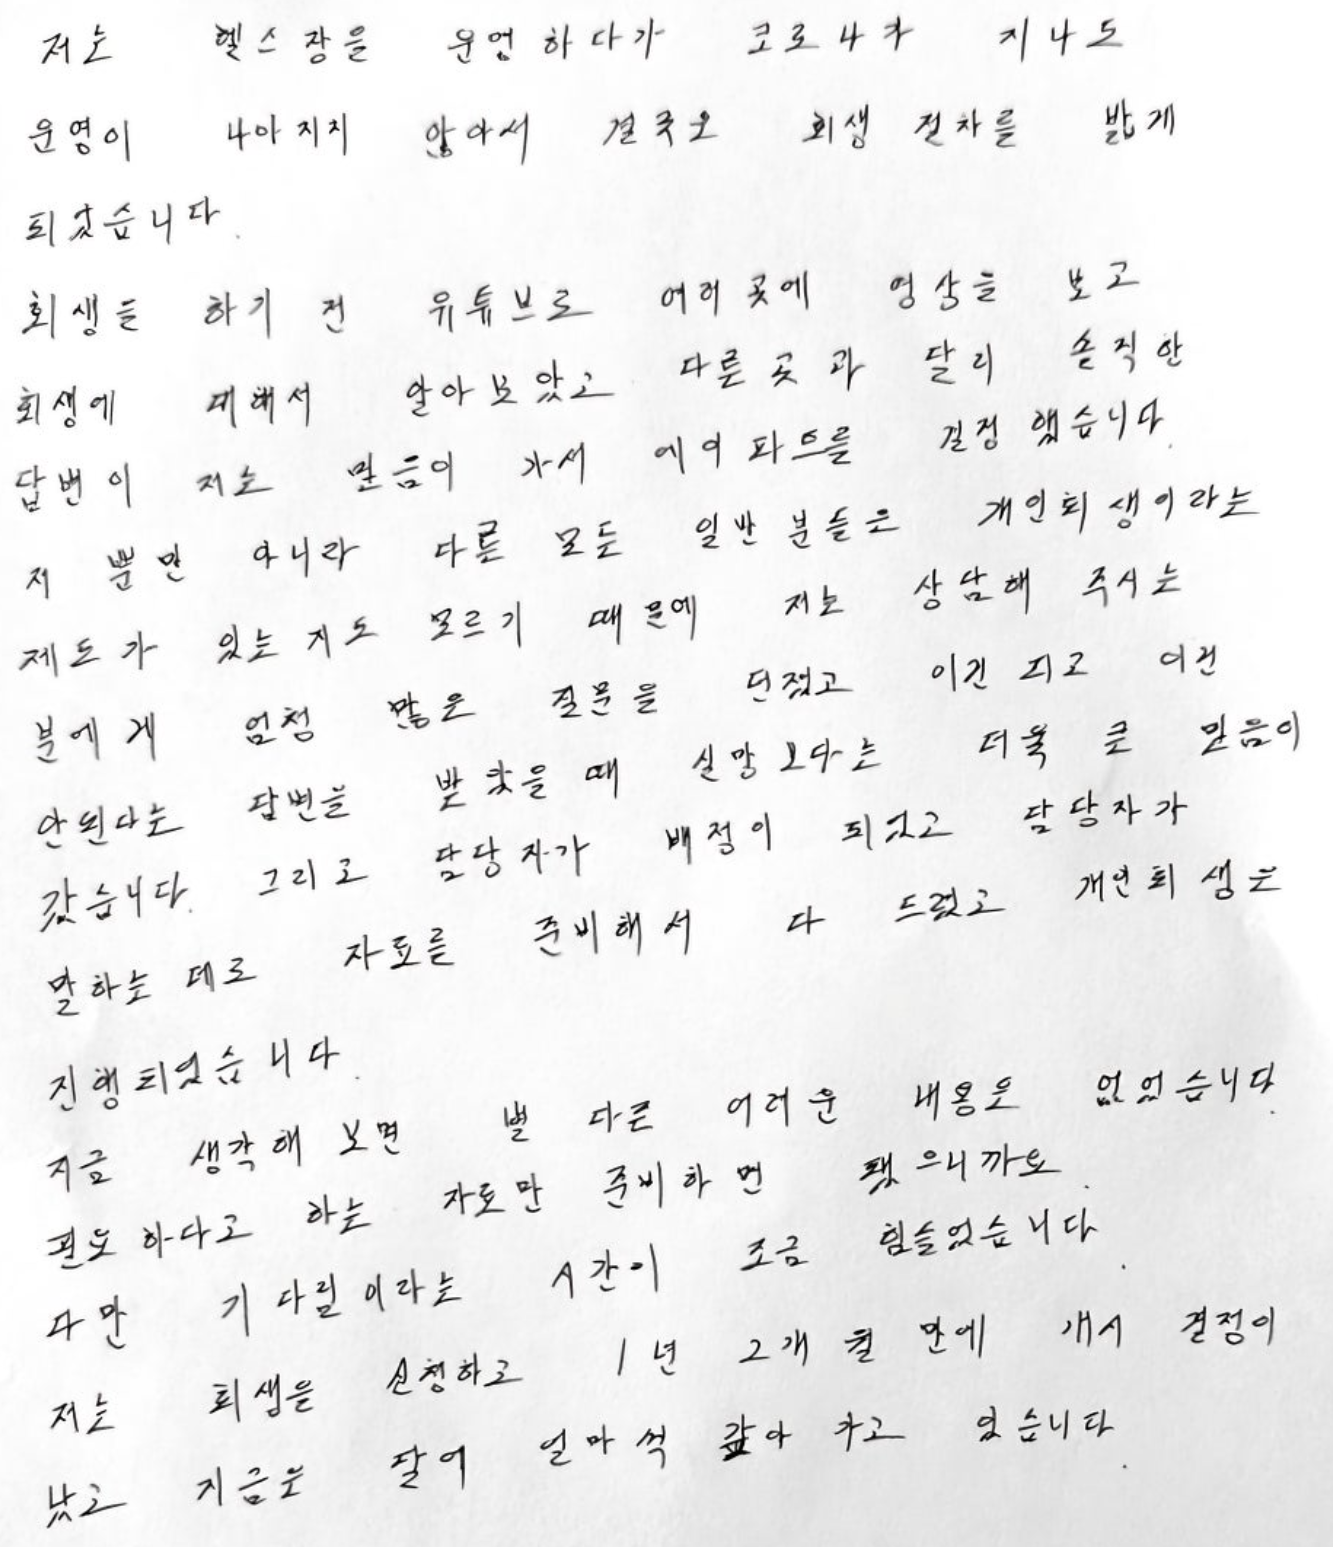 저는 헬스장을 운영하다가 코로나가 지나도
운영이 나아지지 않아서 결국은 회생 절차를 밟게
되었습니다.
회생을 하기 전 유튜브로 여러 곳에 영상을 보고
회생에 대해서 알아보았고 다른 곳과 달리 솔직한
답변이 저는 믿음이 가서 에이파으를 결정했습니다.
저 뿐만 아니라 다른 모든 일반 분들은 개인회생이라는
제도가 있는지도 모르기 때문에 저는 상담해 주시는
분에게 엄청 많은 질문을 던졌고 이건 되고 이건
안된다는 답변을 받았을 때 실망보다는 더욱 큰 믿음이
갔습니다. 그리고 담당자가 배정이 되었고 담당자가
말하는 데로 자료를 준비해서 다 드렸고 개인회생은
진행되었습니다.
지금 생각해보면 별 다른 어려운 내용은 없었습니다.
필요하다고 하는 자료만 준비하면 됐으니까요.
다만 기다림이라는 시간이 조금 힘들었습니다.
저는 회생을 신청하고 1년 2개월 만에 개시 결정이
났고 지금은 달에 얼마씩 갚아 가고 있습니다.